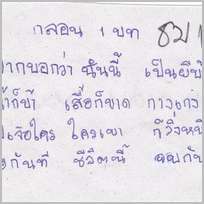 กลอน 1 บท
ากบอกว่า ฉันนี้ เป็นผีบ้
ผ้าก็ขา เสื้อก็ขาด กางเกง
เจอใคร ใครเขา ก็วิ่งหนี
กันที ชีวิตนี้ จบกัน